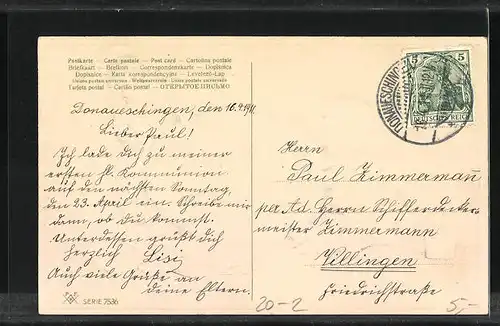 Postkarte – Carte postale – Post card – Cartolina postale
Briefkaart – Brefkort – Correspondenzkarte – Dopisnica
Dopisnice – Karta korespondencyjna – Levelező-Lap
Unione postale universelle – Weltpostverein – Union postale universelle
Tarjeta postal – Cartão postal – ОТКРЫТОЕ ПИСЬМО
Donaueschingen, den 16.4.1911
Lieber Paul!
Ich lade dich zu meiner
ersten hl. Kommunion
auf den nächsten Sonntag,
den 23. April ein. Schreibe mir
dann, ob Du kommst.
Unterdessen grüßt dich
herzlich Lisi.
Auch viele Grüße an
deine Eltern.
SERIE 7536
5 5
DEUTSCHES REICH
DONAUESCHINGEN
Herrn
Paul Zimmermann
per Ad. Herrn Schieferdecker-
meister Zimmermann
Villingen
Friedrichstraße
20-2
5,-